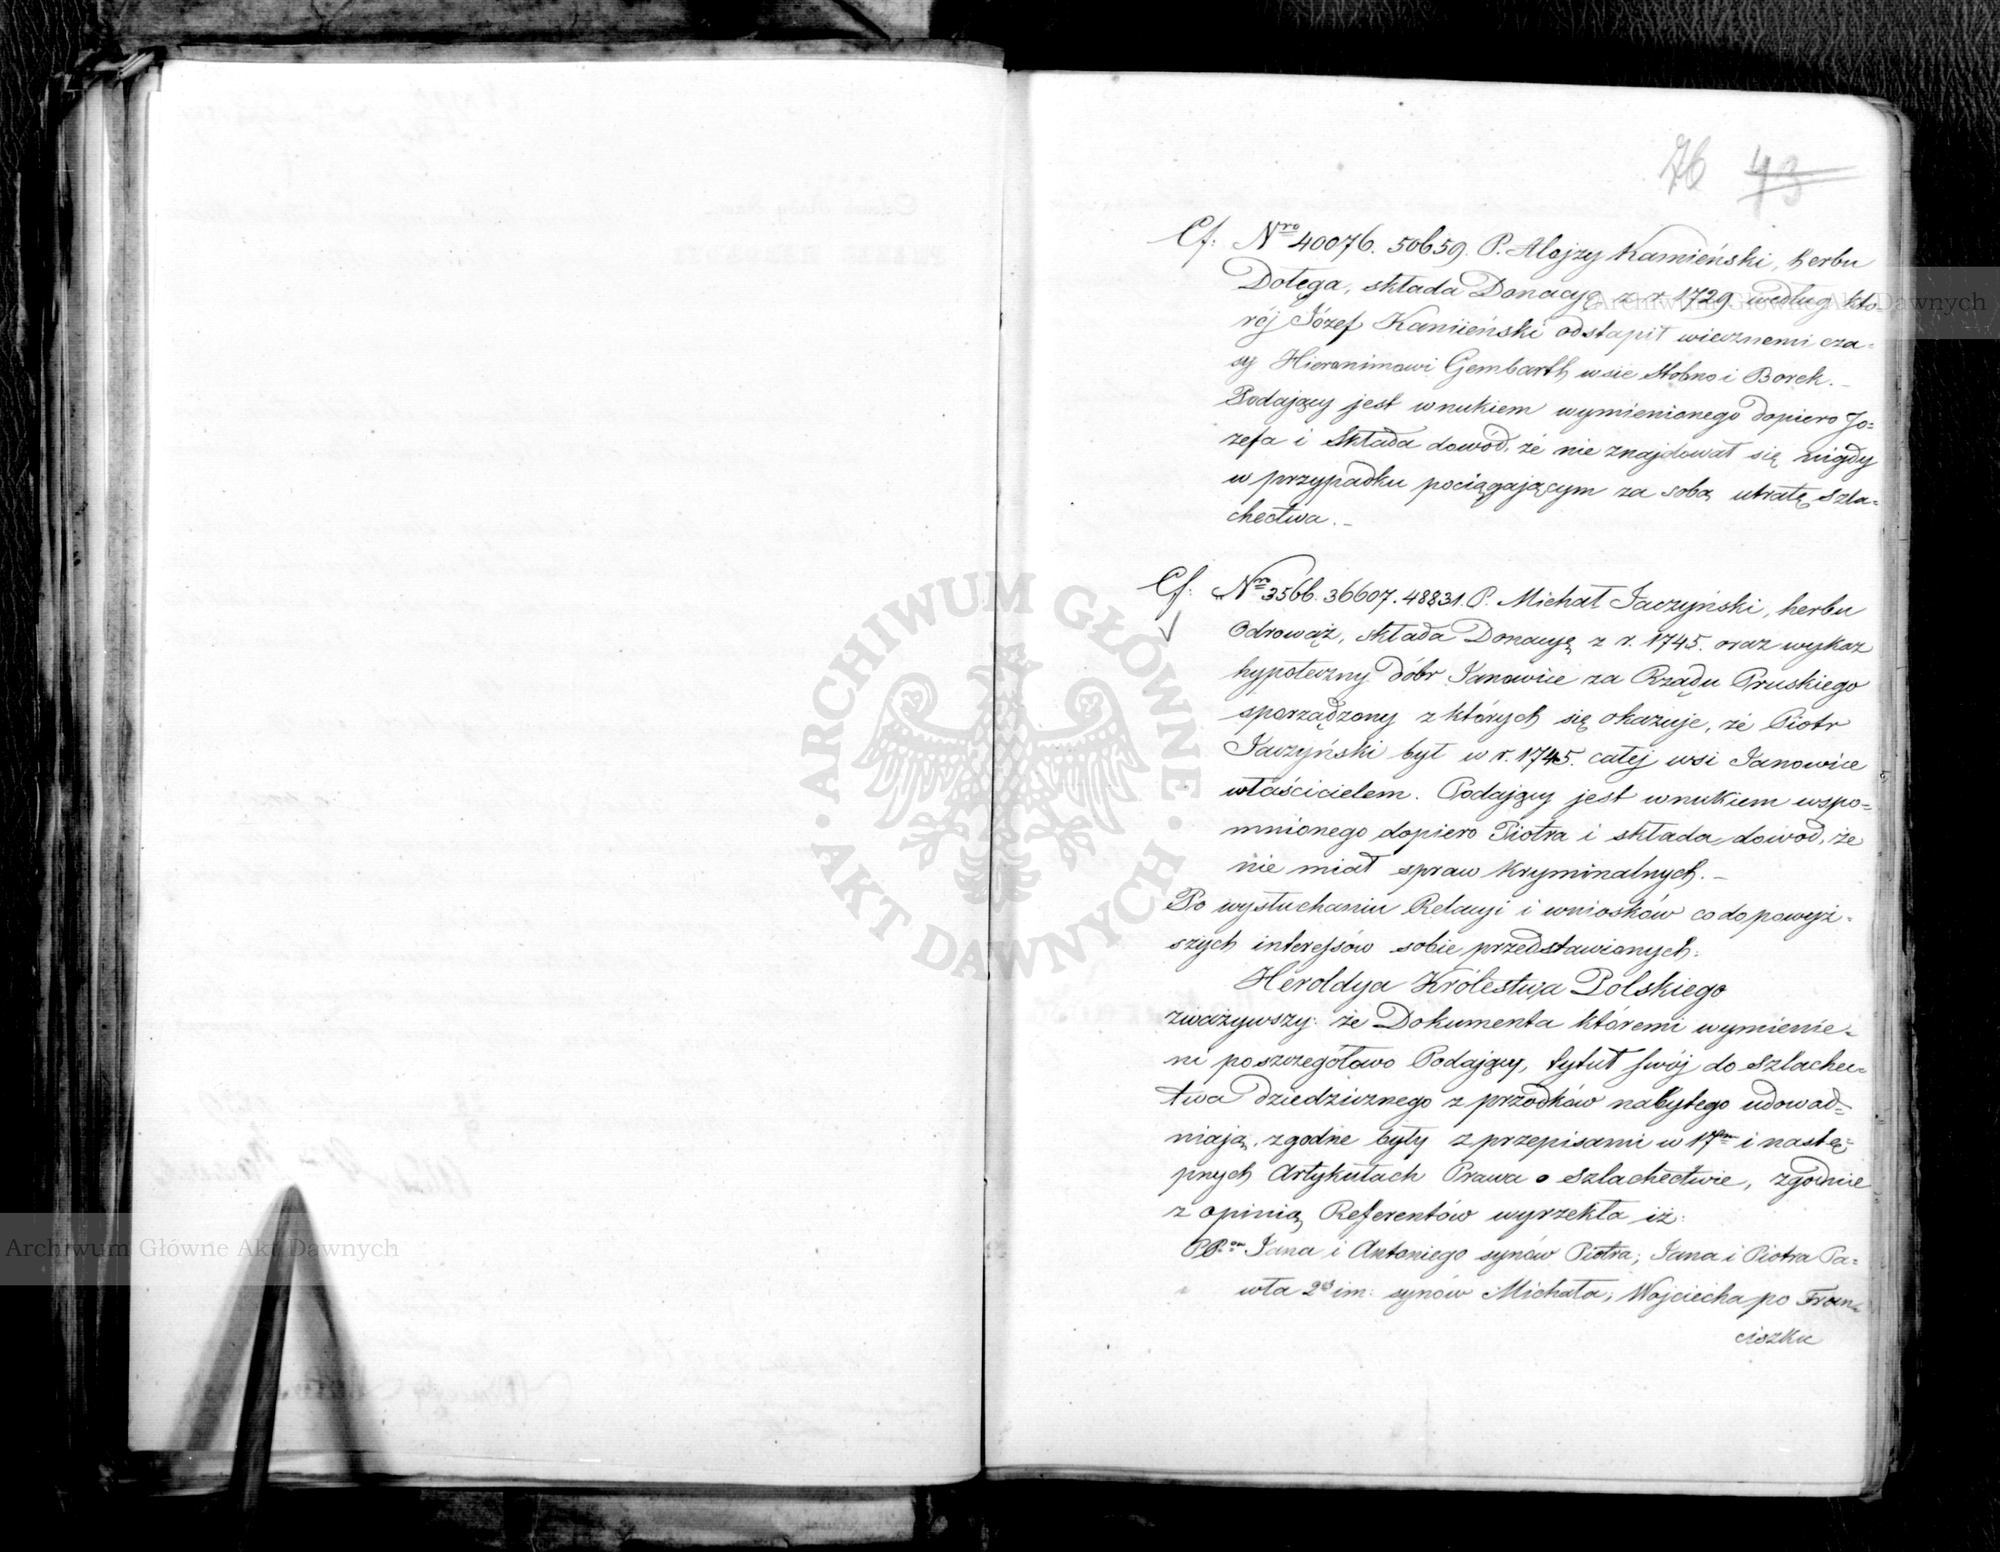 76 43
Cf: Nro 40076. 50659. P. Alojzy Kamieński, herbu
Dołęga, składa Donacyę z r. 1729 według któ-
réj Józef Kamieński odstąpił wiecznemi cza-
sy Hieronimowi Gembarth wsie Stobno i Borek. –
Podający jest wnukiem wymienionego dopiero Jó-
zefa i składa dowód, że nie znajdował się nigdy
w przypadku pociągającym za sobą utratę szla-
chectwa. –
Cf: Nro 3566. 36607. 48831. P. Michał Jaczyński, herbu
Odrowąż, składa Donacyę z r. 1745. oraz wykaz
hypoteczny dóbr Janowice za Rządu Pruskiego
sporządzony z których się okazuje, że Piotr
Jaczyński był w r. 1745. całej wsi Janowice
właścicielem. Podający jest wnukiem wspo-
mnionego dopiero Piotra i składa dowód, że
nie miał spraw kryminalnych. –
Po wysłuchaniu Relacyi i wniosków co do powyż-
szych interessów sobie przedstawionych:
Heroldya Królestwa Polskiego
zważywszy: że Dokumenta któremi wymienie-
ni poszczegółowo Podający, tytuł swój do szlachec-
twa dziedzicznego z przodków nabytego udowad-
niają, zgodne były z przepisami w 17m i nastę-
pnych Artykułach Prawa o szlachectwie, zgodnie
z opinią Referentów wyrzekła iż:
PP. Jana i Antoniego synów Piotra; Jana i Piotra Pa-
wła 2ga im: synów Michała; Wojciecha po Fran-
ciszku
ARCHIWUM GŁÓWNE AKT DAWNYCH
Archiwum Główne Akt Dawnych
Archiwum Główne Akt Dawnych